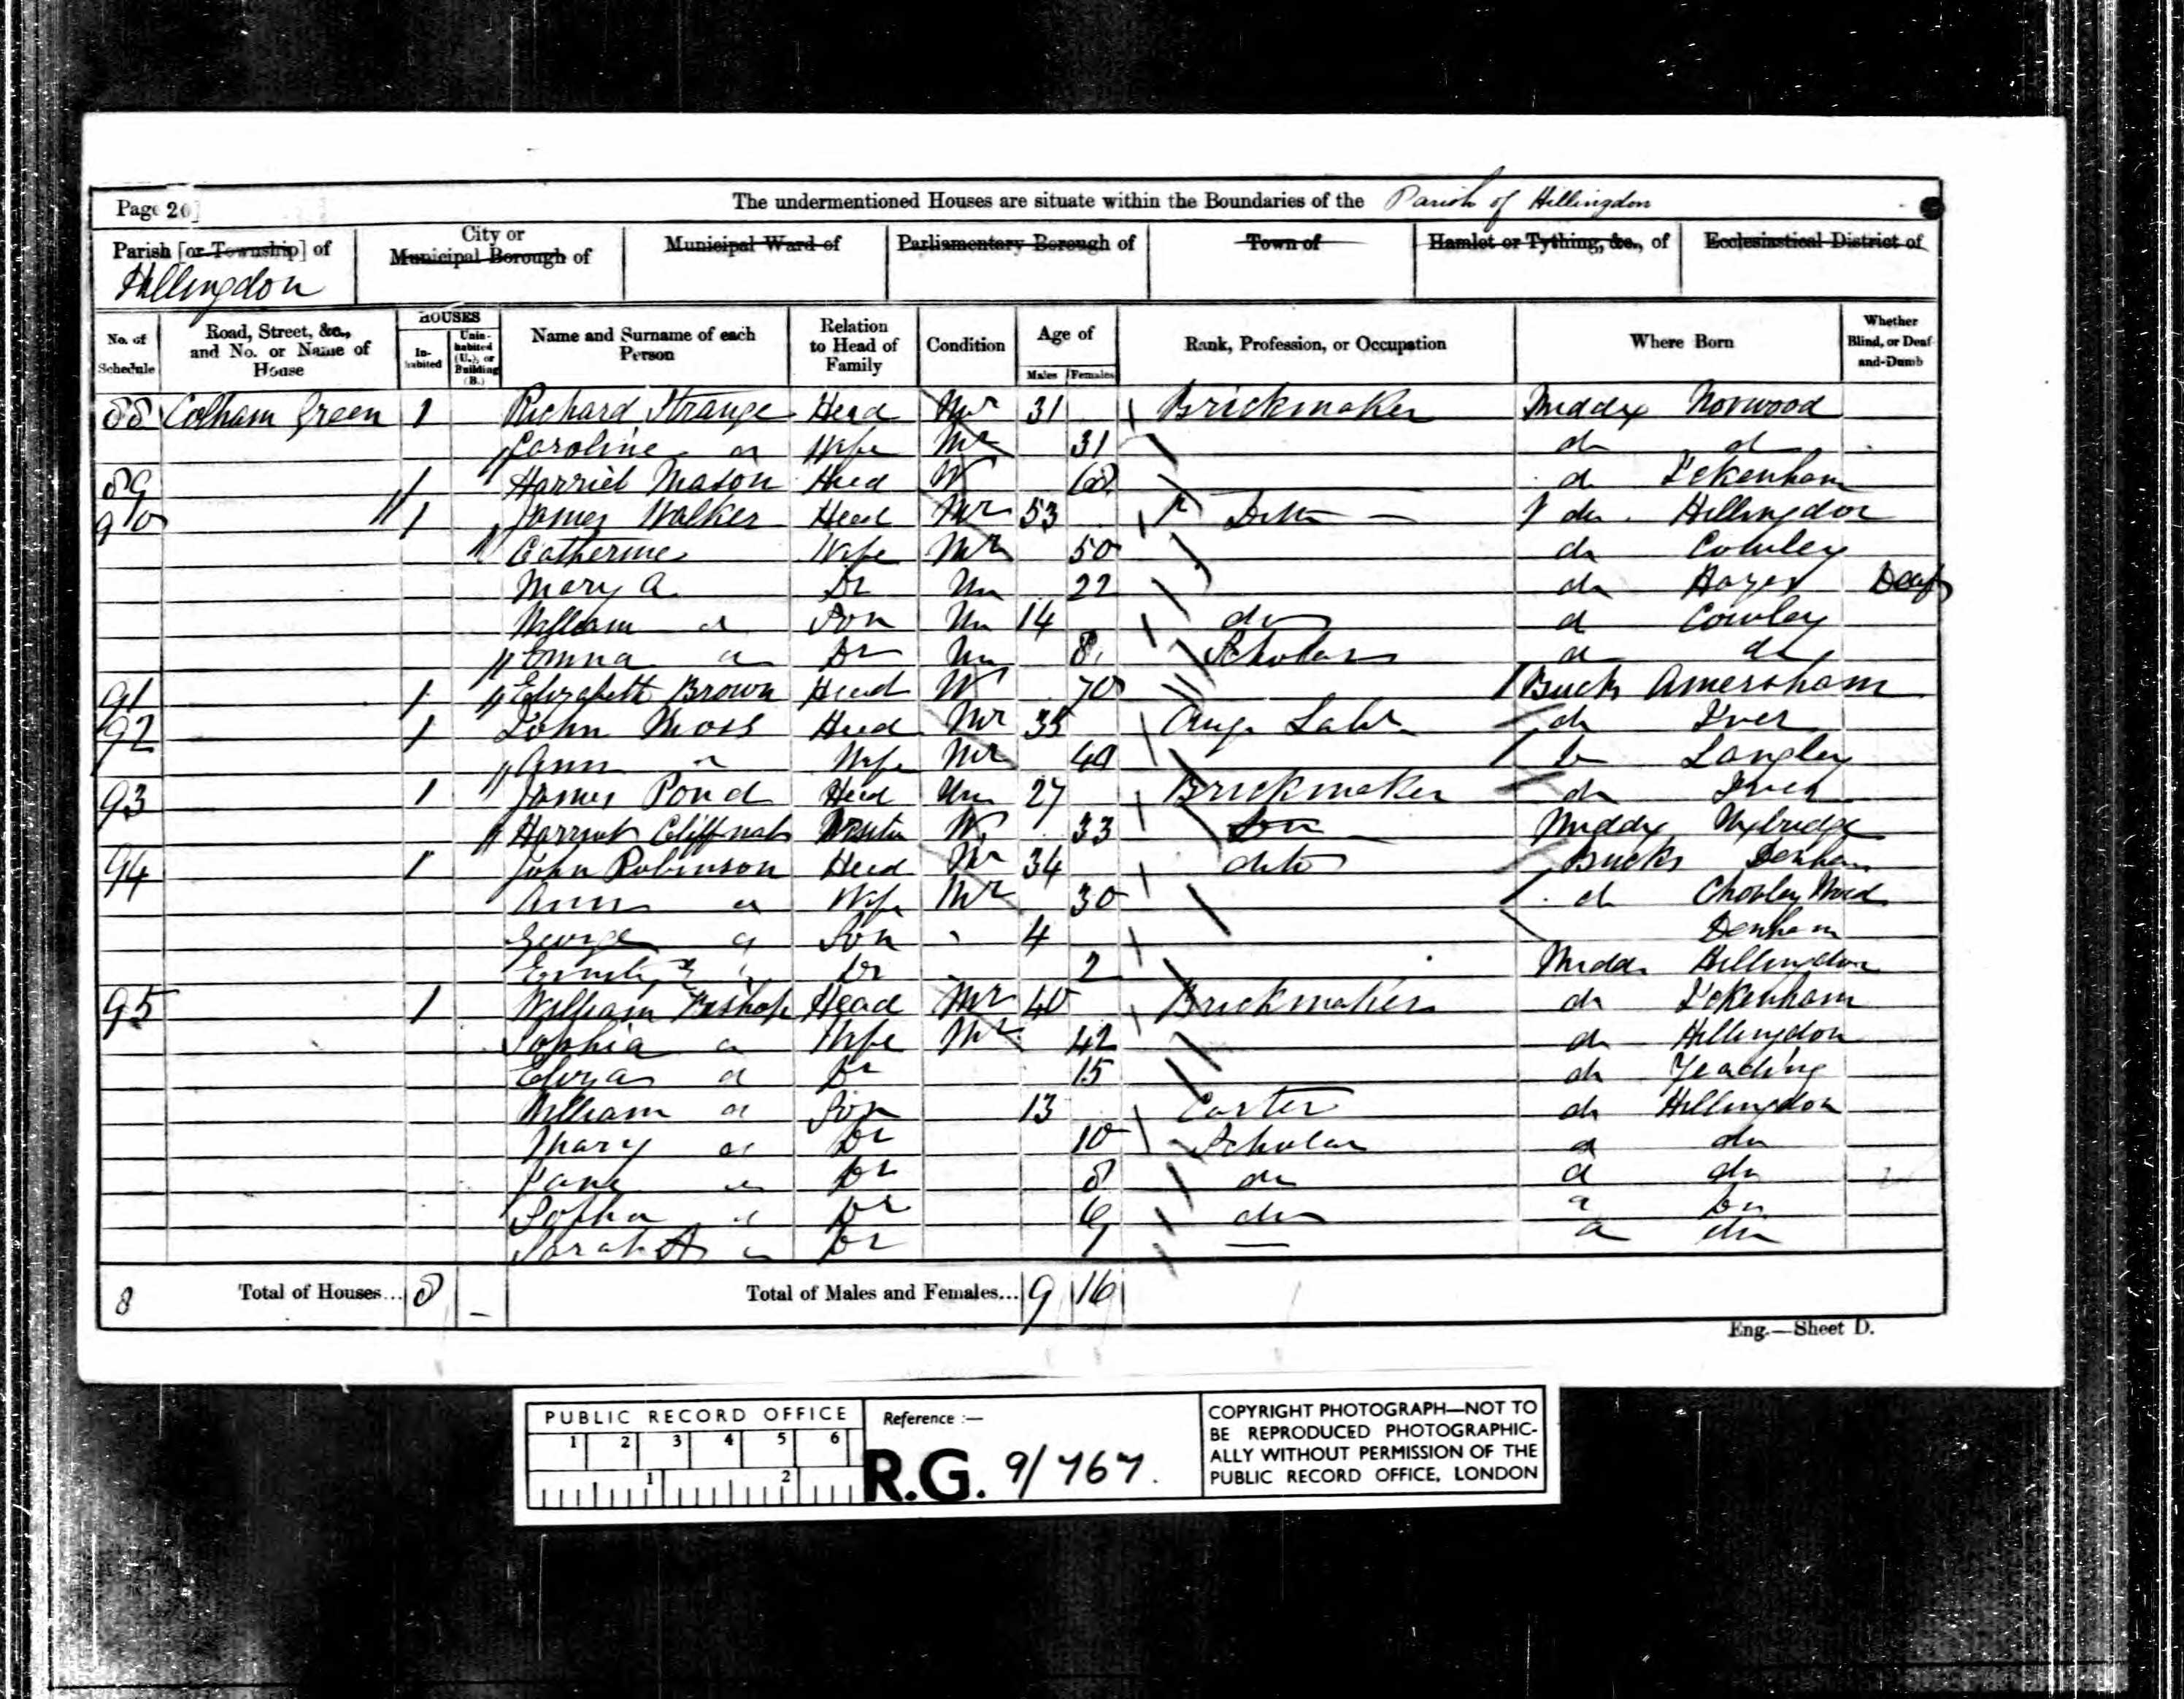 Page 26]
The undermentioned Houses are situate within the Boundaries of the Parish of Hillingdon
Parish [or Township] of Hillingdon
City or Municipal Borough of
Municipal Ward of
Parliamentary Borough of
Town of
Hamlet or Tything, &c., of
Ecclesiastical District of
No. of Schedule
Road, Street, &c., and No. or Name of House
HOUSES
In-habited
Unin-habited (U.), or Building (B.)
Name and Surname of each Person
Relation to Head of Family
Condition
Age of
Males Females
Rank, Profession, or Occupation
Where Born
Whether Blind, or Deaf-and-Dumb
88 Colham Green 1 Richard Strange Head Mr 31 Brickmaker Middx Norwood
Caroline do Wife Mr 31 do do
89 1 Harriet Mason Head W 68 do Ickenham
90 1 James Walker Head Mr 53 Ditto do Hillingdon
Catherine Wife Mr 50 do Cowley
Mary A Dr Un 22 do Hayes Deaf
William do Son Un 14 do do Cowley
Emma do Dr Un 8 Scholar do do
91 1 Elizabeth Brown Head W 70 Bucks Amersham
92 1 John Moss Head Mr 35 Ag. Labr do Iver
Ann do Wife Mr 40 do Langley
93 1 James Pond Head Un 27 Brickmaker do Iver
Harriet Visitor W 33 Middx Uxbridge
94 1 John Robinson Head Mr 34 ditto Bucks Denham
Ann do Wife Mr 30 do Chorley Wood
George do Son 4 Denham
Emily do Dr 2 Midds Hillingdon
95 1 William Bishop Head Mr 40 Brickmaker do Ickenham
Sophia do Wife Mr 42 do Hillingdon
Eliza do Dr 15 do Yeading
William do Son 13 Carter do Hillingdon
Mary do Dr 10 Scholar do do
Jane do Dr 8 do do do
Sophia do Dr 6 do do do
Sarah A do Dr do do
8 Total of Houses... 8 – Total of Males and Females... 9 16
Eng.—Sheet D.
PUBLIC RECORD OFFICE
1 2 3 4 5 6
1 2
Reference :—
R.G. 9/767.
COPYRIGHT PHOTOGRAPH—NOT TO
BE REPRODUCED PHOTOGRAPHIC-
ALLY WITHOUT PERMISSION OF THE
PUBLIC RECORD OFFICE, LONDON